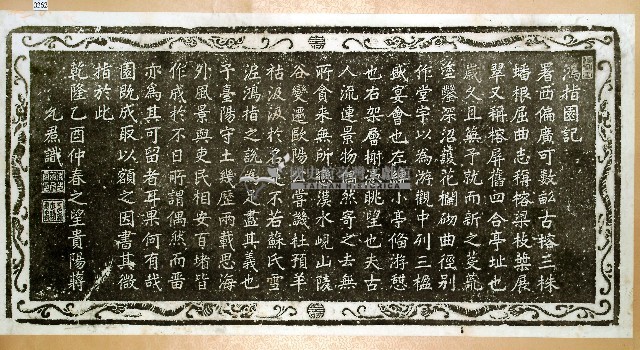 3252
鴻指園記
署西偏廣可數畝古榕三株
蟠根屈曲志稱榕梁枝葉展
翠又稱榕屏舊四合亭址也
歲久且蕪予就而新之芟荒
塗鑿深沼蒔花欄砌曲徑別
作堂宇以為游觀中列三楹
盛宴會也左 小亭偹游憩
也右架層榭憑眺望也夫古
人流連景物偶然寄之去無
所貪來無所 漢水峴山陵
谷變遷歐陽 嘗譏杜預羊
祜汲汲於名 不若蘇氏雪
泥鴻指之說 足盡其義也
予臺陽守土幾歷兩載思海
外風景與吏民相安百堵皆
作成於不日所謂偶然而留
亦為其可留者耳果何有哉
園既成取以額之因書其微
指於此
乾隆乙酉仲春之望貴陽蔣
允焄識